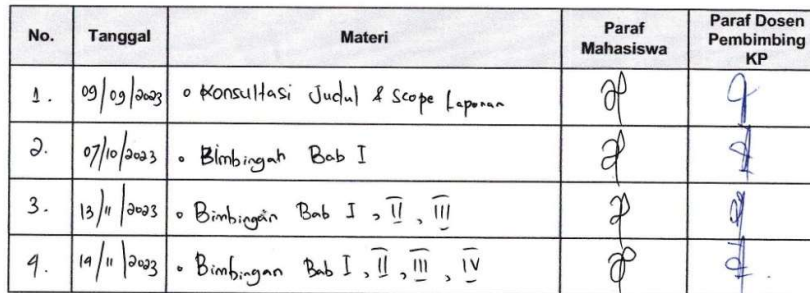 No. Tanggal Materi Paraf Mahasiswa Paraf Dosen Pembimbing KP
1. 09/09/2023 • Konsultasi Judul & Scope Laporan
2. 07/10/2023 • Bimbingan Bab I
3. 13/11/2023 • Bimbingan Bab I, II, III
4. 14/11/2023 • Bimbingan Bab I, II, III, IV